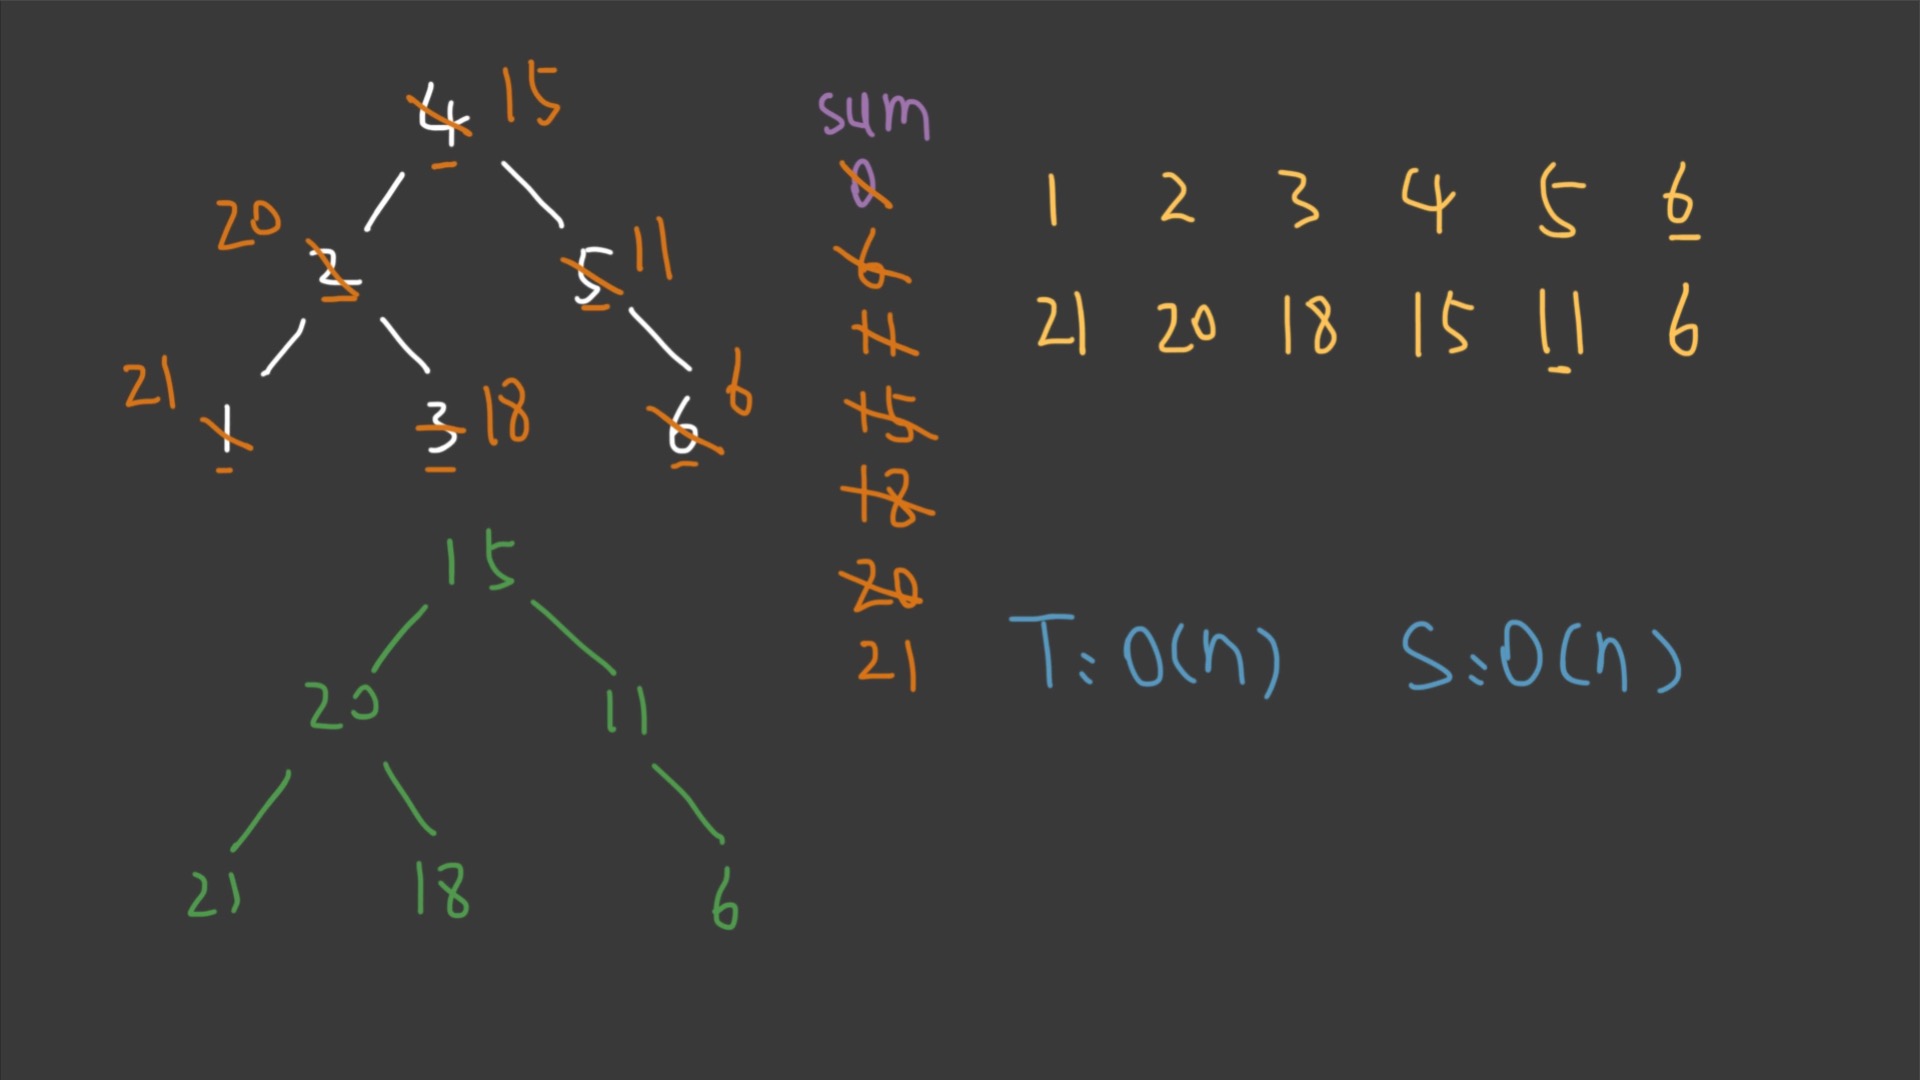 4 15
20 2 5 11
21 1 3 18 6 6
15
20 11
21 18 6
sum
0
6
11
15
18
20
21
1 2 3 4 5 6
21 20 18 15 11 6
T: O(n) S: O(n)